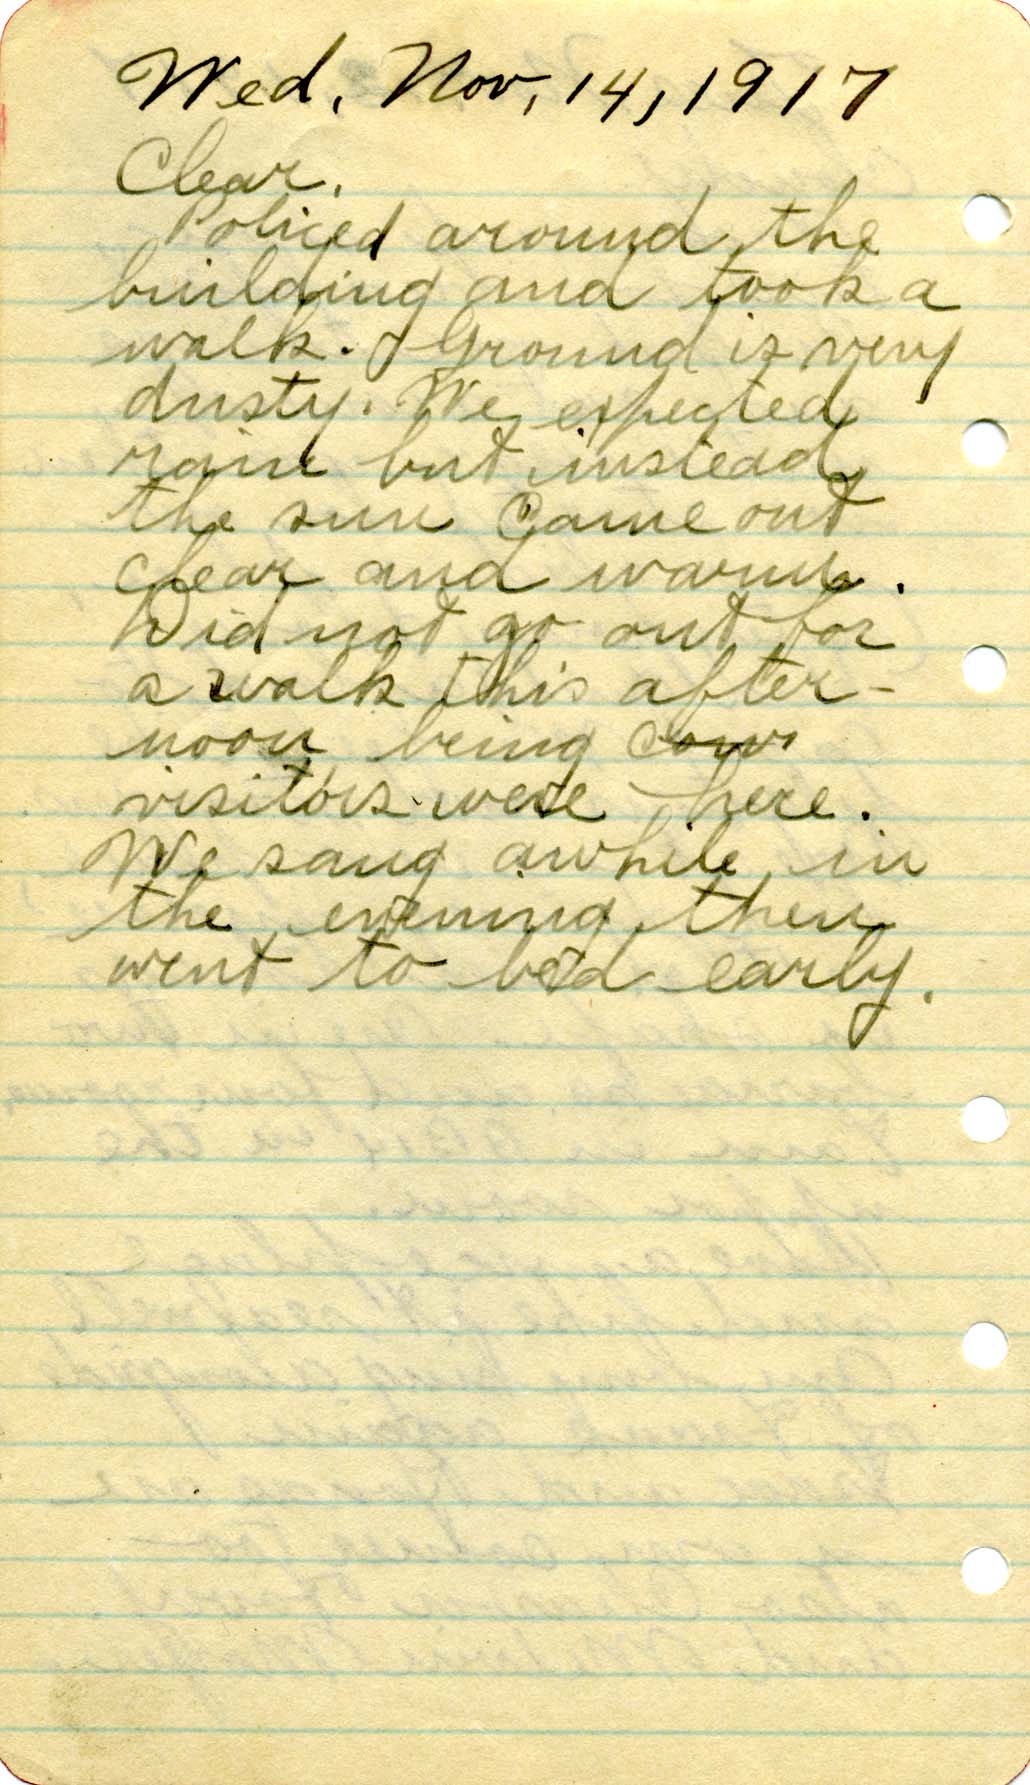 Wed. Nov. 14, 1917
Clear.
Policed around the
building and took a
walk. Ground is very
dusty. We expected
rain but instead
the sun came out
clear and warm.
Did not go out for
a walk this after-
noon being
visitors were here.
We sang awhile in
the evening then
went to bed early.